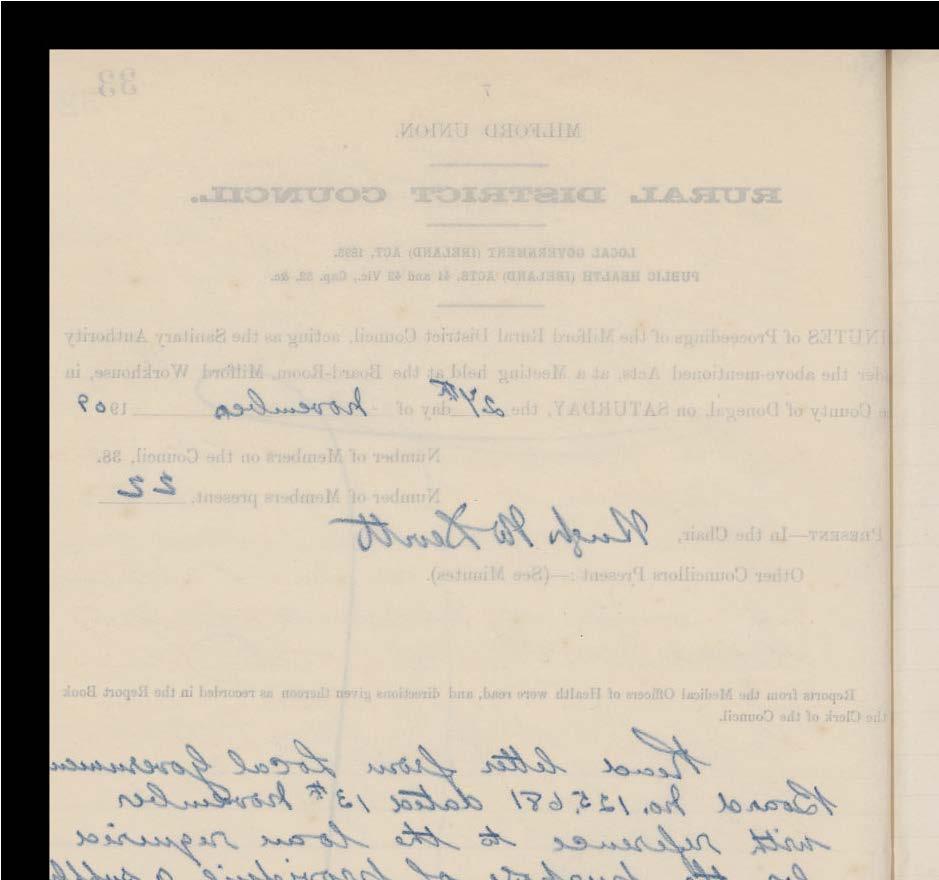 33
7
MILFORD UNION.
RURAL DISTRICT COUNCIL.
LOCAL GOVERNMENT (IRELAND) ACT, 1898.
PUBLIC HEALTH (IRELAND) ACTS, 41 and 42 Vic., Cap. 52, &c.
INUTES of Proceedings of the Milford Rural District Council, acting as the Sanitary Authority
der the above-mentioned Acts, at a Meeting held at the Board-Room, Milford Workhouse, in
e County of Donegal, on SATURDAY, the 27th day of November 1909
Number of Members on the Council, 38.
Number of Members present, 22
PRESENT—In the Chair, Hugh McDevitt
Other Councillors Present :—(See Minutes).
Reports from the Medical Officers of Health were read, and directions given thereon as recorded in the Report Book
the Clerk of the Council.
Read letter from Local Governmen
Board No. 125,681 dated 13th November
with reference to the loan required
for the purpose of providing a